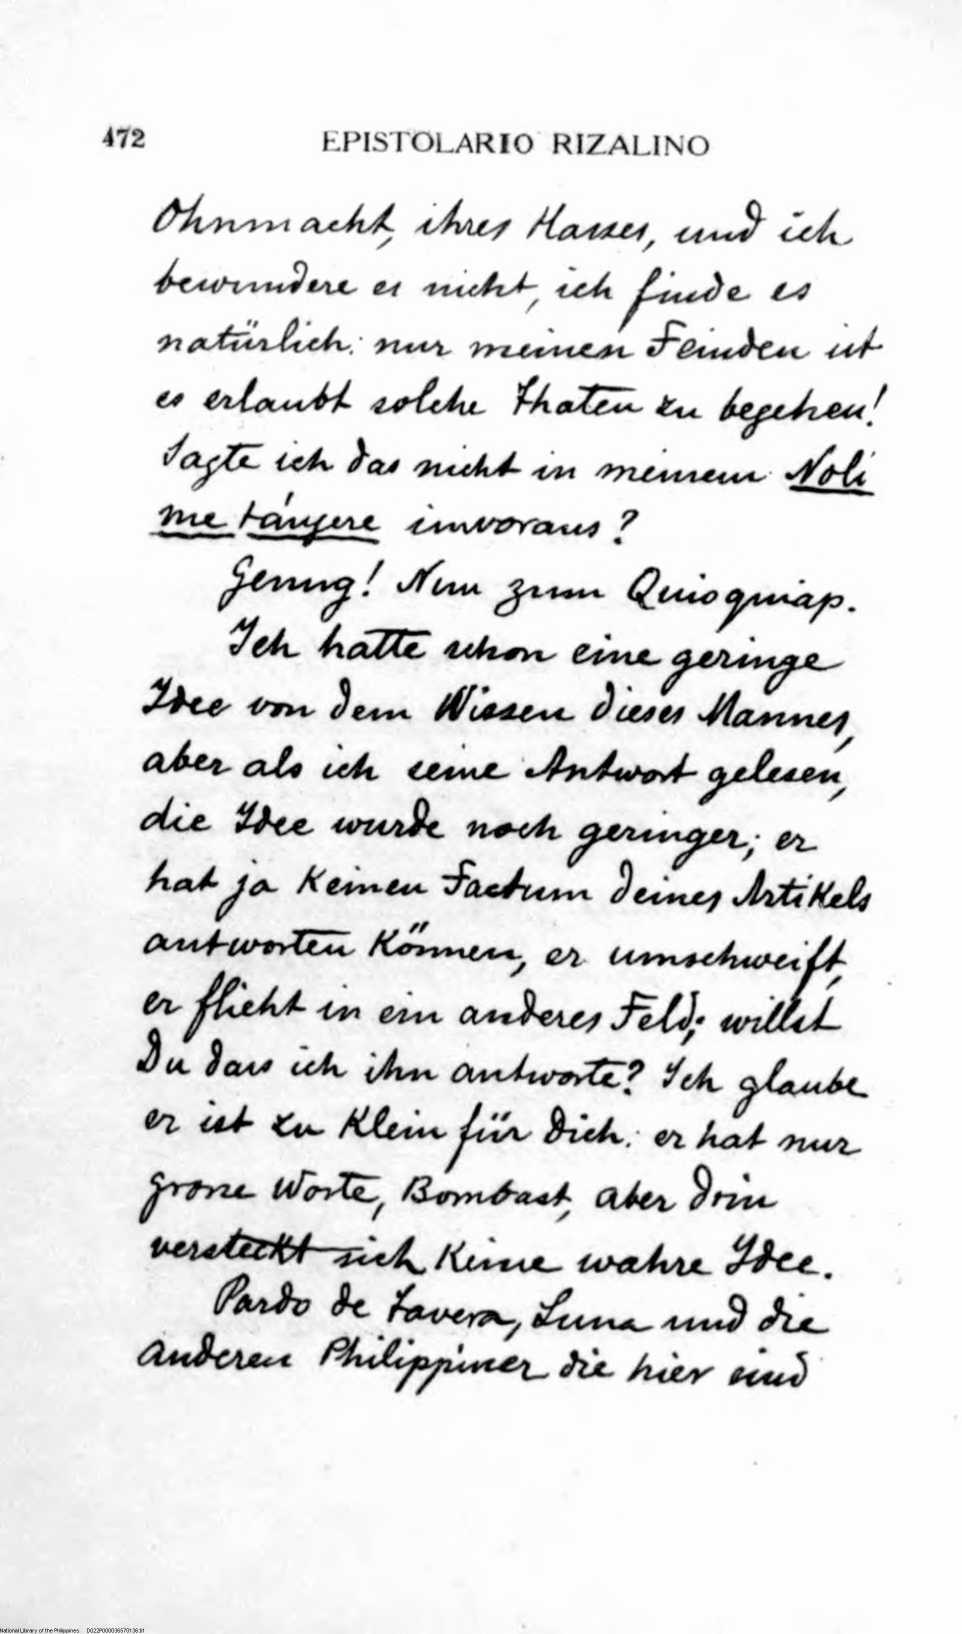 472
EPISTOLARIO RIZALINO
Ohnmacht, ihres Hasses, und ich
bewundere es nicht, ich finde es
natürlich: nur meinen Feinden ist
es erlaubt solche Thaten zu begehen!
Sagte ich das nicht in meinem Noli
me tángere imvoraus?
Genug! Nun zum Quioquiap.
Ich hatte schon eine geringe
Idee von dem Wissen dieses Mannes,
aber als ich seine Antwort gelesen,
die Idee wurde noch geringer; er
hat ja keinen Factum deines Artikels
antworten können, er umschweift,
er flieht in ein anderes Feld; willst
Du dass ich ihn antworte? Ich glaube
er ist zu klein für Dich: er hat nur
grosse Worte, Bombast, aber drin
versteckt sich keine wahre Idee.
Pardo de Tavera, Luna und die
anderen Philippiner die hier sind
National Library of the Philippines